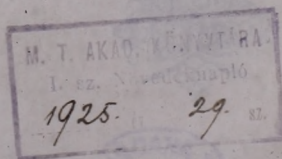 M. T. AKAD. KÖNYVTÁRA.
I. sz. Növedéknapló
1925. 29. sz.